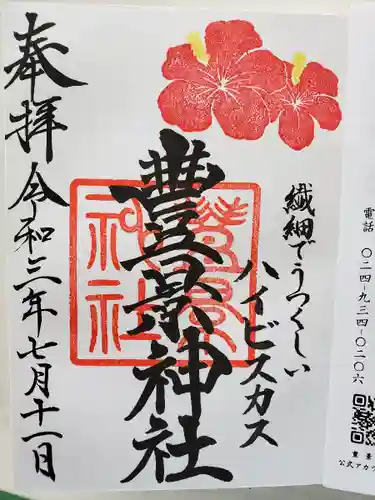 電話 〇二四-九三四-〇二〇六
公式アカ
繊細でうつくしい
ハイビスカス
豊景神社
奉拝 令和三年七月十一日